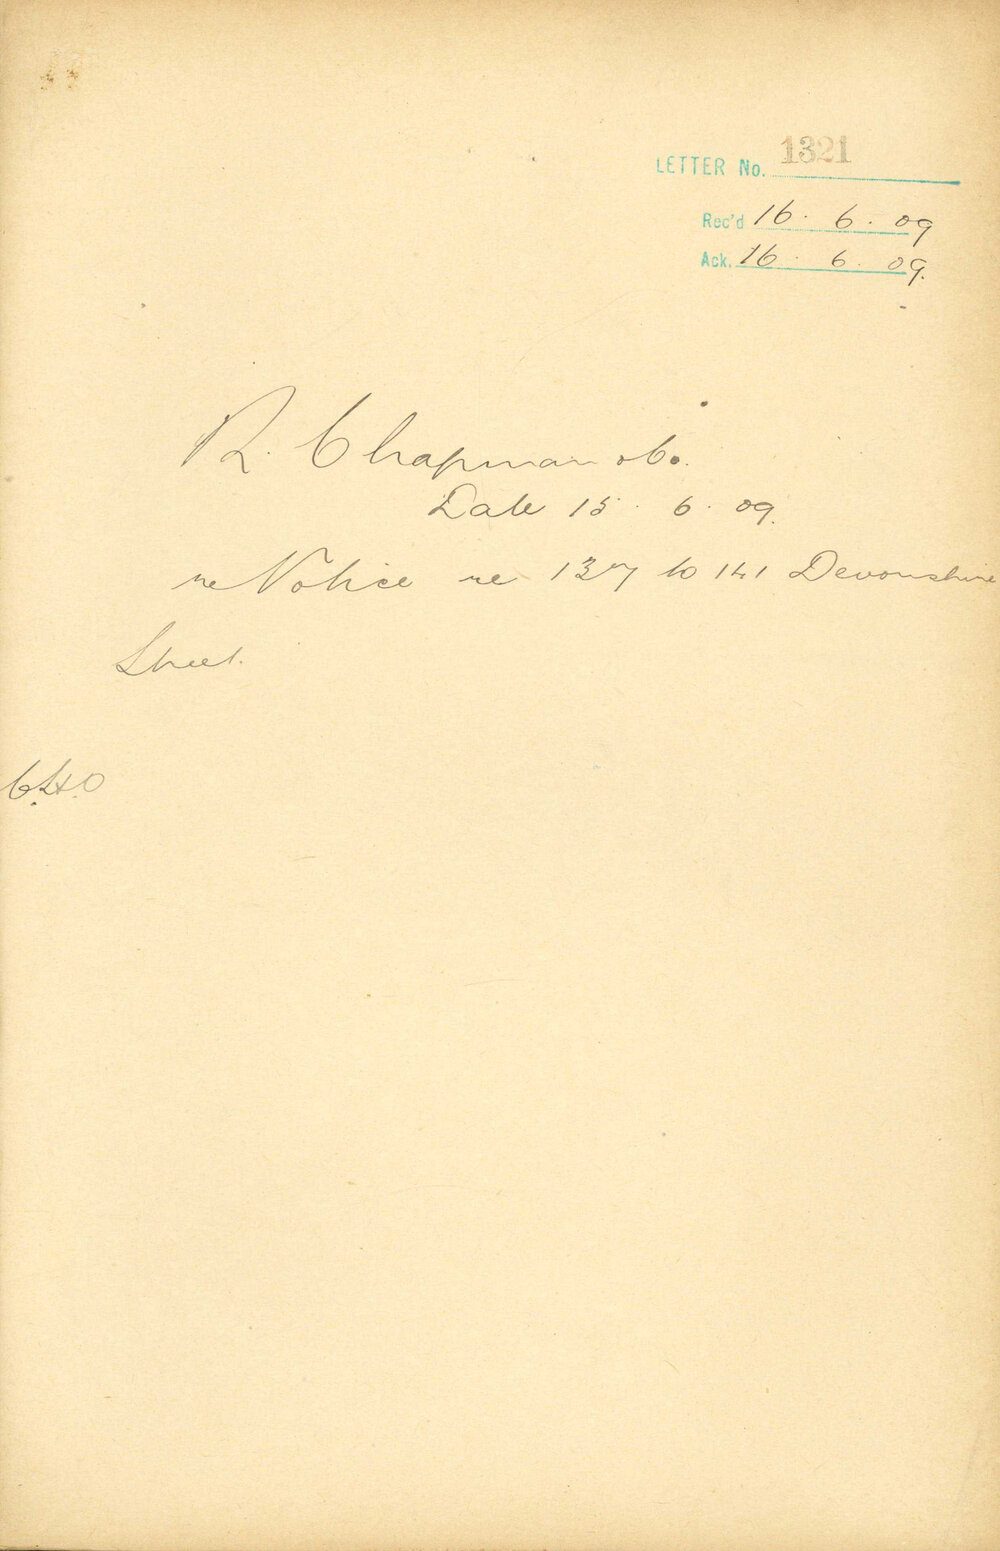 LETTER No. 1321
Rec'd 16. 6. 09
Ack. 16. 6. 09.
R. Chapman & Co.
Date 15. 6. 09.
re Notice re 137 to 141 Devonshire
Street.
C.H.O